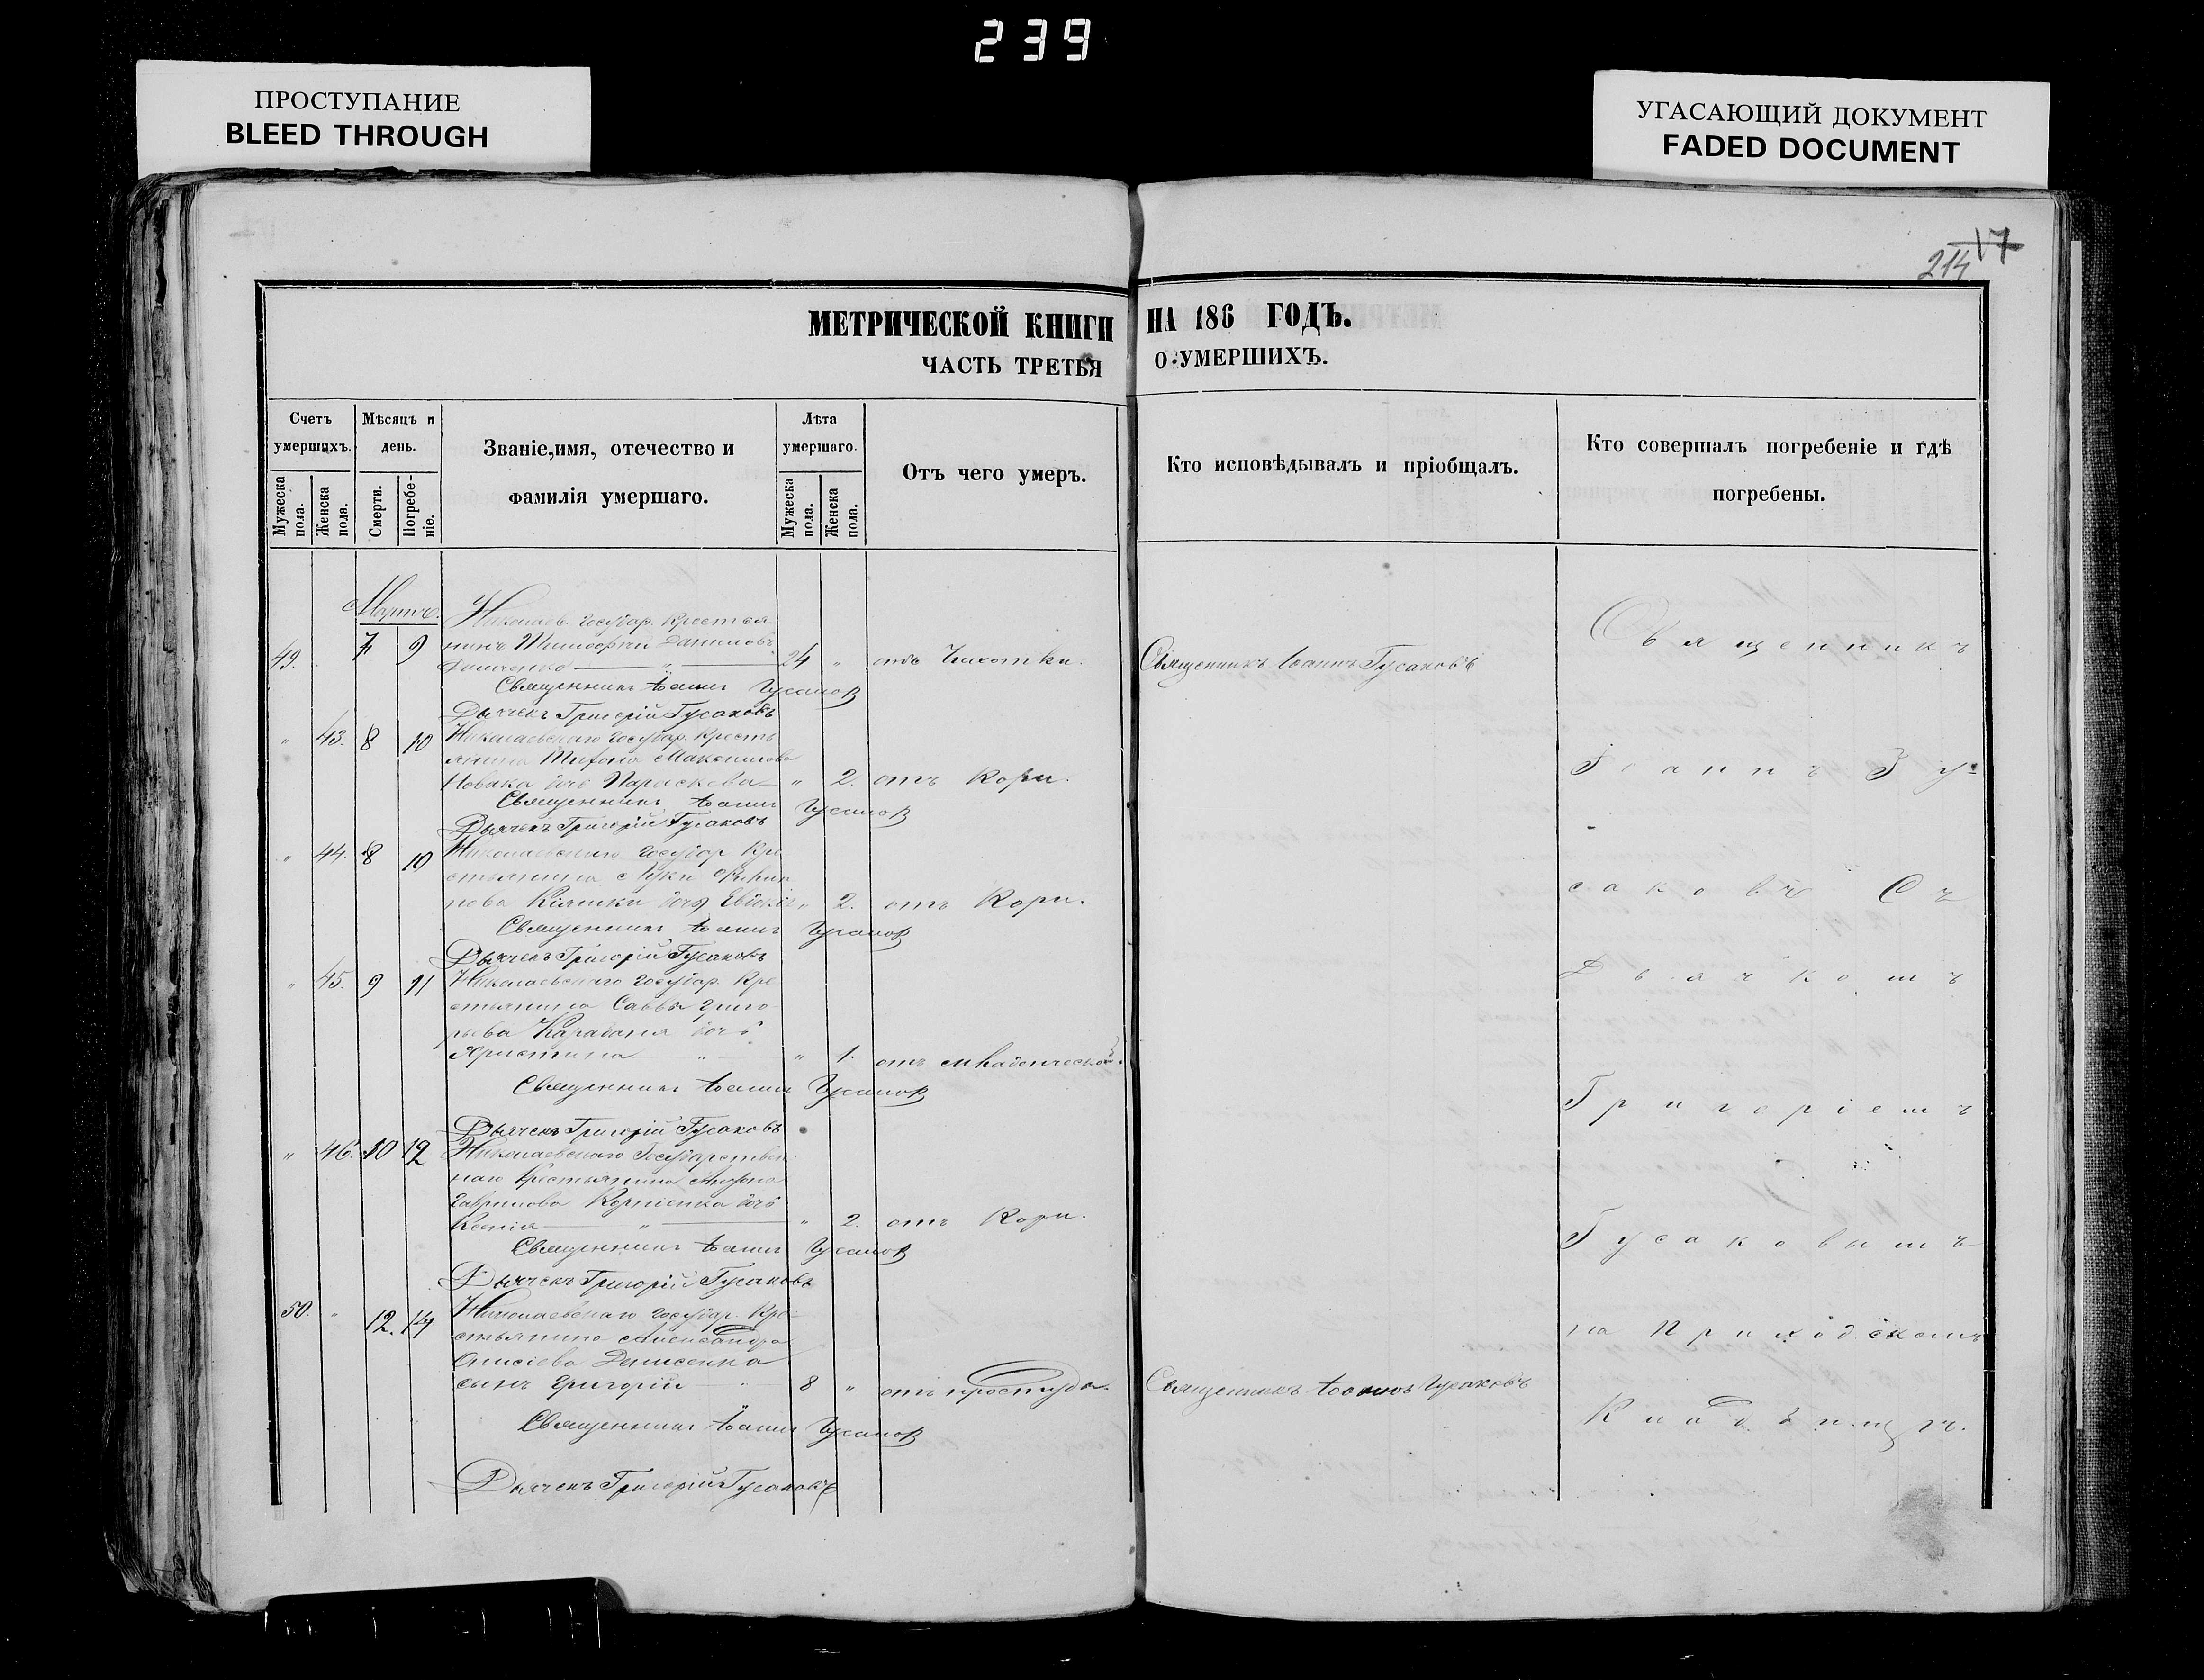 239
ПРОСТУПАНИЕ
BLEED THROUGH
УГАСАЮЩИЙ ДОКУМЕНТ
FADED DOCUMENT
17
214
МЕТРИЧЕСКОЙ КНИГИ НА 186 ГОДЪ.
ЧАСТЬ ТРЕТЬЯ О УМЕРШИХЪ.
Счетъ умершихъ.
Мужеска пола.
Женска пола.
Мѣсяцъ и день.
Смерти.
Погребеніе.
Званіе, имя, отечество и
фамилія умершаго.
Лѣта умершаго.
Мужеска пола.
Женска пола.
Отъ чего умеръ.
Кто исповѣдывалъ и пріобщалъ.
Кто совершалъ погребеніе и гдѣ
погребены.
Мартъ.
Николаев. Государ. крестья-
49. 7 9 нинъ Тимофей Даниловъ
24 " отъ Чахотки. Священникъ Іоаннъ Гусаковъ
Священникъ Іоаннъ Гусаков
Дьячекъ Григорій Гусаковъ
" 43. 8 10 Николаевскаго Государ. Кресть
янина Максимова
Новака дочь Параскева " 2. отъ Кори.
Священникъ Іоаннъ Гусаков
Дьячекъ Григорій Гусаковъ
" 44. 8 10 Николаевскаго Государ. Кре
стьянина Луки
дочь " 2. отъ Кори.
Священникъ Іоаннъ Гусаков
Дьячекъ Григорій Гусаковъ
" 45. 9 11 Николаевскаго Государ. Кре
стьянина Саввы Григо
рьева дочь
Христина " " 1. отъ младенческой.
Священникъ Іоаннъ Гусаков
Дьячекъ Григорій Гусаковъ
" 46. 10 12 Николаевскаго Государствен
наго Крестьянина
Гаврилова Корніенка дочь
Ксенія " " 2. отъ Кори.
Священникъ Іоаннъ Гусаков
Дьячекъ Григорій Гусаковъ
50. " 12. 14 Николаевскаго Государ. Кре
стьянина Александра
Онисіева Денисенка
сынъ Григорій 8 " отъ простуды. Священникъ Іоаннъ Гусаковъ
Священникъ Іоаннъ Гусаков
Дьячекъ Григорій Гусаковъ
Священникъ
Іоаннъ Гу-
саковъ Съ
Дьячкомъ
Григоріемъ
Гусаковымъ
на Приходскомъ
Кладбищѣ.